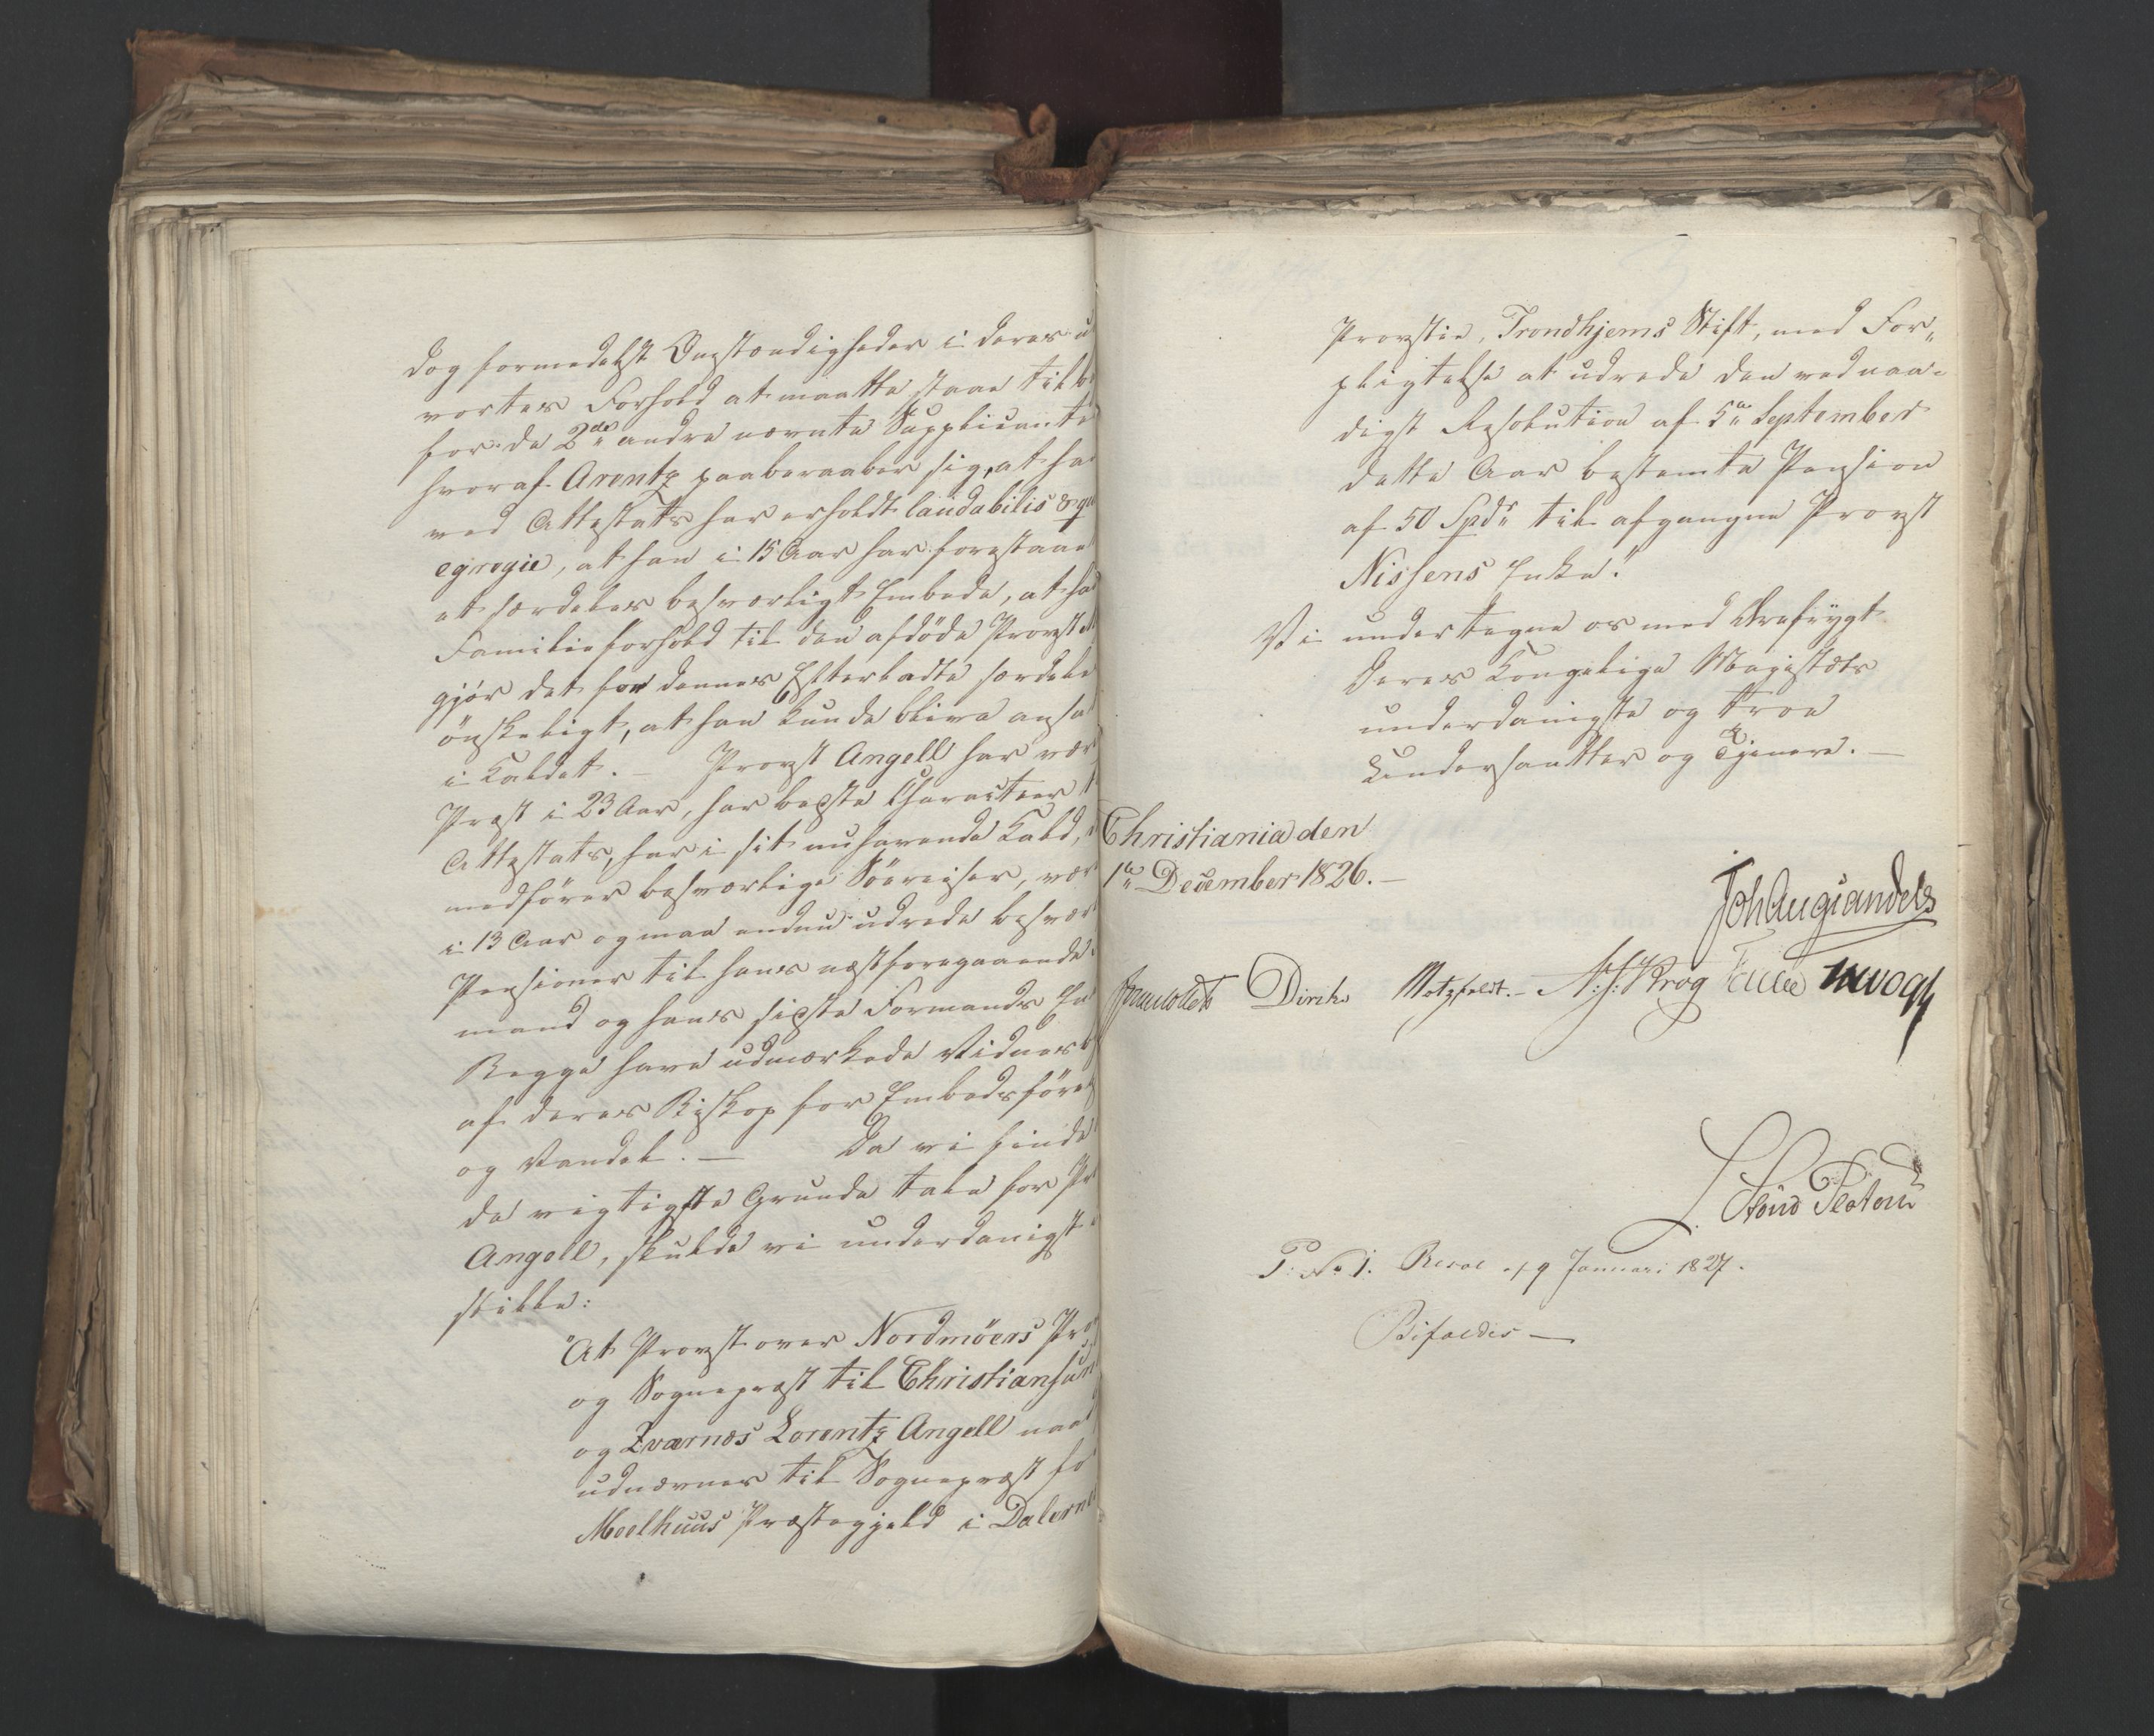 dog formedelst Omstændigheder i deres u
vortes Forhold at maatte staae tilba
for de 2de andre nævnte Supplicante
hvoraf Arentz paaberaaber sig, at ha
ved Attestats har erholdt laudabilis & qu
egregie, at han i 15 Aar har forestaaet
et særdeles besværligt Embede, at ha
Familieforhold til den afdöde Provst M
gjör det for dennes Efterladte særdele
önskeligt, at han kunde blive ansat
i Kaldet. – Provst Angell har vær
Præst i 23 Aar, har bedste Characteer t
Attestats, har i sit nuhavende Kald,
medförer besværlige Söereiser, vær
i 13 Aar og maa endnu udrede besvær
Pensioner til hans næstforegaaende
mand og hans sidste Formands En
Begge have udmærkede Vidnesb
af deres Biskop for Embedsföre
og Vandel. – Da vi finde
de vigtigste Grunde tale for Pr
Angell, skulde vi underdanigst
stille:
"At Provst over Nordmöers Pro
og Sognepræst til Christiansun
og Qværnæs Lorentz Angell naad
udnævnes til Sognepræst fo
Meelhuus Præstegjeld i Dalerne
Provstie, Trondhjems Stift, med For„
pligtelse at udrede den ved naa„
digst Resolution af 5te September
dette Aar bestemte Pension
af 50 Spdr til afgangne Provst
Nissens Enke."
Vi undertegne os med Ærefrygt
Deres Kongelige Majestæts
underdanigste og troe
Undersaatter og Tjenere. –
Christiania den
1te December 1826. –
Joh Aug Sandels
Diriks Motzfeldt. – A. J. Krog
P. No 1. Resol af 9 Januari 1827.
Bifaldes –